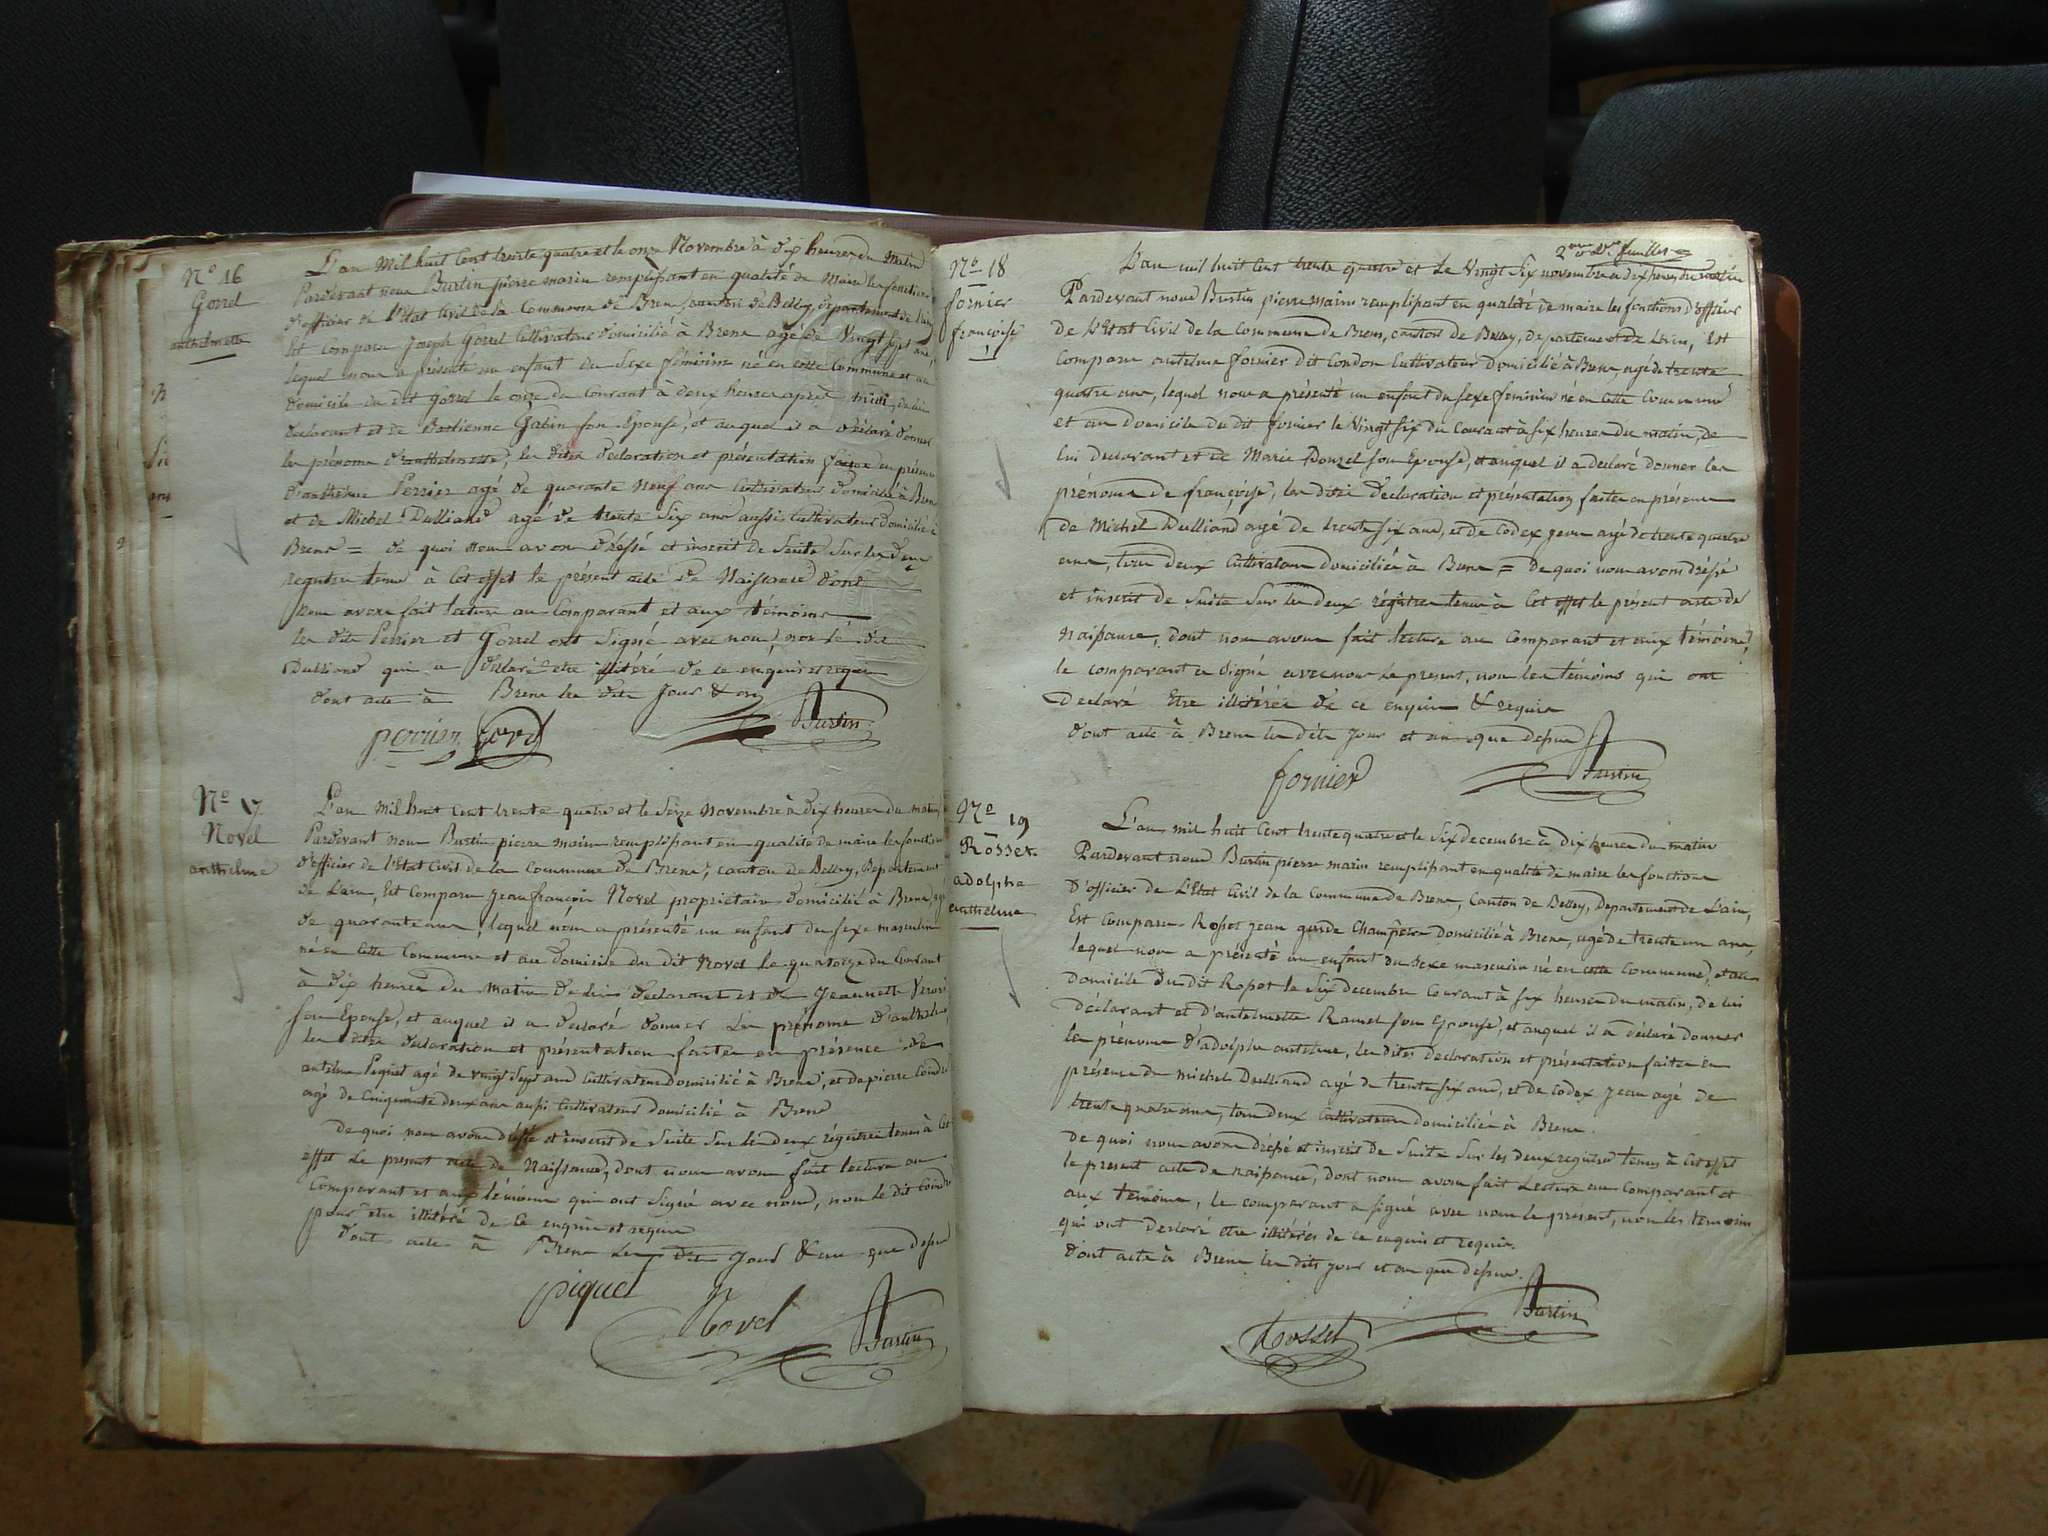 N.o 16
Gorrel
anthelmette
L'an mil huit Cent trente quatre et le onze Novembre à dix heures du Matin
Pardevant nous Burtin pierre marin remplissant en qualité de Maire les fonctions
d'officier de l'Etat Civil de la Commune de Brens, canton de Belley, département de l'ain
Est comparu Joseph Gorrel Cultivateur domicilié à Brens agé de Vingt sept ans
lequel nous a présenté un enfant du Sexe féminin né en cette Commune et au
domicile du dit Gorrel le onze du Courant à deux heures après midi, de lui
declarant et de Bastienne Gabin son Epouse, et auquel il a déclaré donner
les prénoms d'anthelmette, les dites declaration et présentation faites en présence
d'anthelme Perrier agé de quarante neuf ans Cultivateur domicilié à Brens
et de Michel Dulliand agé de trente Six ans aussi Cultivateur domicilié à
Brens = de quoi nous avons dréssé et inscrit de Suite Sur les deux
registres tenus à Cet effet le présent acte de Naissance dont
nous avons fait lecture au Comparant et aux témoins
les dits Perrier et Gorrel ont Signé avec nous, non le dit
Dulliand qui a déclaré etre illitéré de ce enquis et requis
dont acte à Brens les dits Jour & an
perrier Gorrel Burtin
N.o 17
Novel
anthelme
L'an mil huit Cent trente quatre et le Seize novembre à dix heures du matin
Pardevant nous Burtin pierre marin remplissant en qualité de maire les fonctions
d'officier de l'Etat Civil de la Commune de Brens, canton de Belley, Département
de L'ain, Est Comparu Jean françois Novel propriétaire domicilié à Brens, agé
de quarante ans, lequel nous a présenté un enfant du sexe masculin
né en Cette Commune et au domicile du dit Novel le quatorze du Courant
à dix heures du matin de lui declarant et de Jeannette
son Epouse, et auquel il a declaré donner les prénoms d'anthelme,
les dites declaration et présentation faites en présence de
antelme Piquet agé de vingt Sept ans Cultivateur domicilié à Brens, et de pierre
agé de Cinquante deux ans aussi Cultivateur domicilié à Brens
De quoi nous avons dréssé et inscrit de Suite Sur les deux régistres tenus à Cet
effet Le present acte de Naissance, dont nous avons fait lecture au
Comparant et aux témoins qui ont Signé avec nous, non le dit
pour etre illitéré de Ce enquis et requis
dont acte à Brens Les dits Jour & an que dessus
piquet
Novel Burtin
2.me & d.er feuillet
N.o 18
fornier
françoise
1
L'an mil huit Cent trente quatre et Le Vingt Six novembre à dix heures du matin
Pardevant nous Burtin pierre marin remplissant en qualité de maire les fonctions d'officier
de l'Etat Civil de la Commune de Brens, canton de Belley, departement de L'ain, Est
Comparu antelme fornier dit London Cultivateur domicilié à Brens, agé de trente
quatre ans, lequel nous a présenté un enfant du Sexe feminin né en Cette Commune
et au domicile du dit fornier le Vingt Six du Courant à Six heures du matin, de
lui declarant et de Marie Douzel son Epouse, et auquel il a declaré donner les
prénoms de françoise, les dites declaration et présentation faites en présence
de Michel Dulliand agé de trente six ans, et de Codex jean agé de trente quatre
ans, tous deux Cultivateurs domiciliés à Brens = De quoi nous avons dréssé
et inscrit de Suite Sur les deux régistres tenus à Cet effet le présent acte de
Naissance, dont nous avons fait lecture au Comparant et aux témoins,
le comparant a Signé avec nous Le present, non les témoins qui ont
Declaré Etre illitérés de ce enquis & requis
dont acte à Brens les dits Jour et an que dessus
fornier Burtin
N.o 19
Rosset
adolphe
anthelme
L'an mil huit Cent trente quatre et le Six decembre à dix heures du matin
Pardevant nous Burtin pierre marin remplissant en qualité de maire les fonctions
D'officier de L'Etat Civil de la Commune de Brens, Canton de Belley, Departement de L'ain,
Est Comparu Rosset jean garde Champêtre domicilié à Brens, agé de trente un ans,
lequel nous a présenté un enfant du Sexe masculin né en cette Commune, et au
domicile du dit Rosset le Six decembre Courant à Six heures du matin, de lui
déclarant et d'antelmette Ramel son Epouse, et auquel il a déclaré donner
les prénoms d'adolphe antelme, les dites declaration et présentation faites en
présence de michel Dulliand agé de trente six ans, et de Codex jean agé de
trente quatre ans, tous deux Cultivateurs domiciliés à Brens.
De quoi nous avons dréssé et inscrit de Suite Sur les deux registres tenus à Cet effet
le present acte de naissance, dont nous avons fait Lecture au Comparant et
aux temoins, le comparant a signé avec nous le present, non les temoins
qui ont declaré etre illitérés de ce enquis et requis.
dont acte à Brens les dits jour et an que dessus.
Rosset Burtin